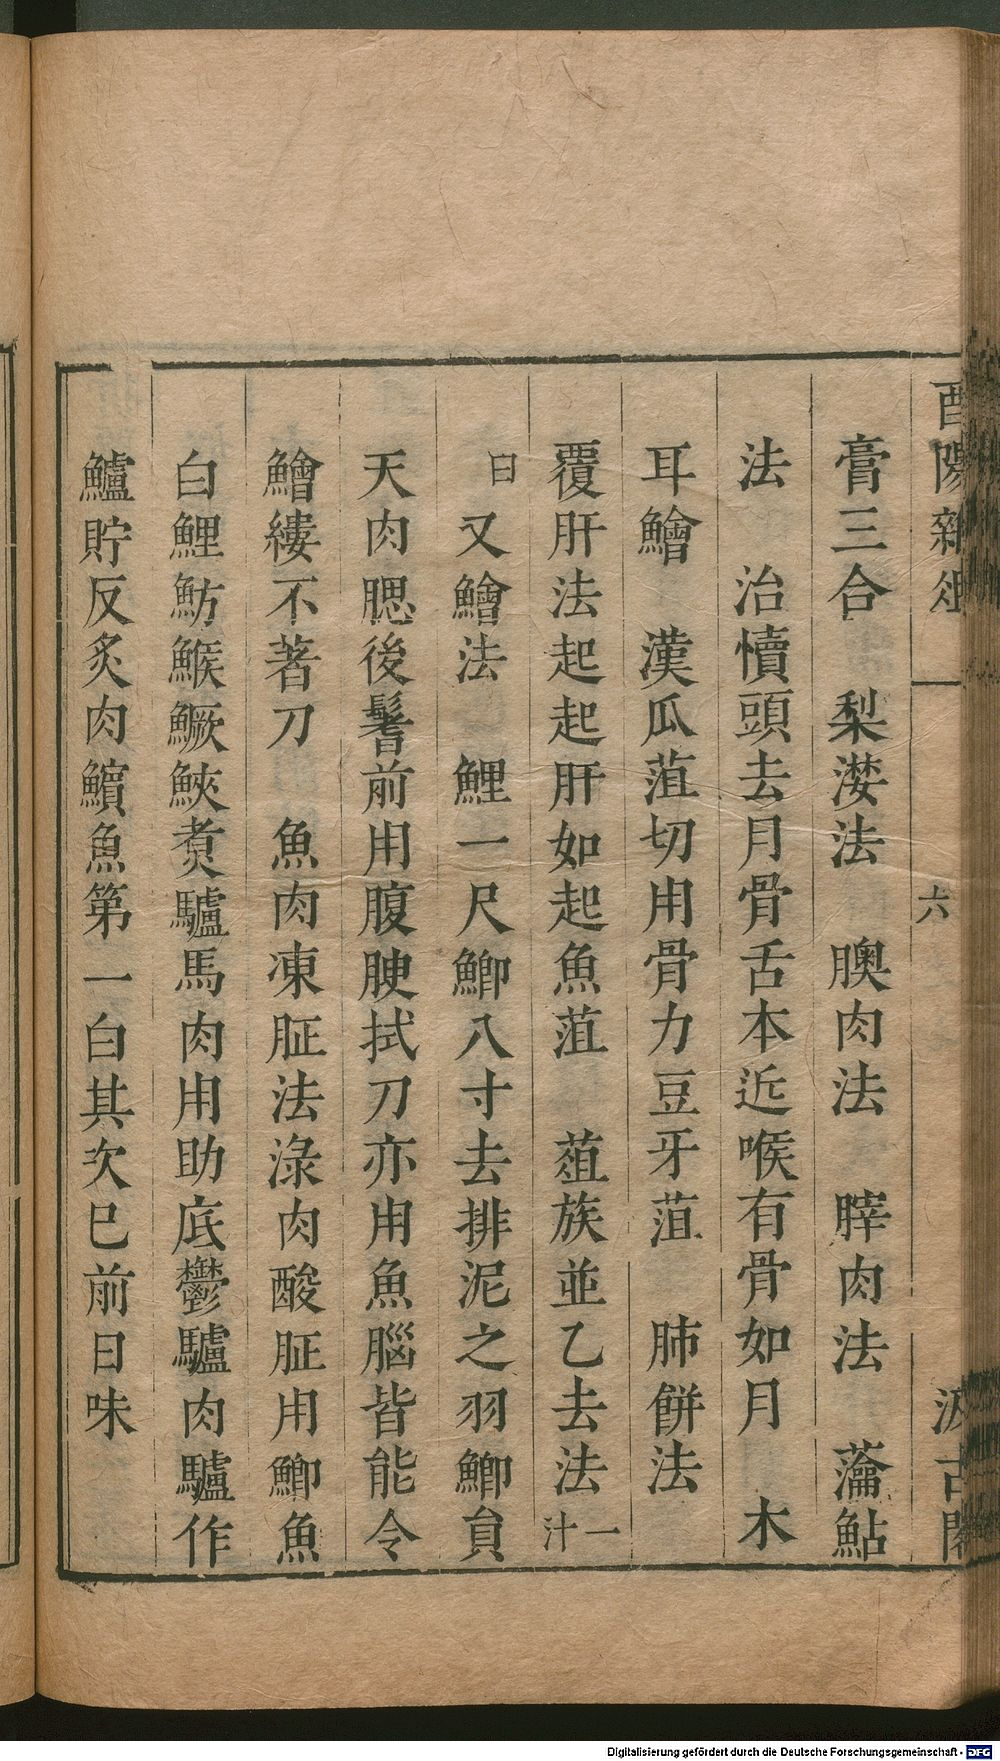 酉陽雜俎 六 汲古閣
膏三合 梨漤法 腝肉法 䐧肉法 瀹鮎
法 治犢頭去月骨舌本近喉有骨如月 木
耳鱠 漢瓜菹切用骨力豆牙菹 肺餅法
覆肝法起起肝如起魚菹 菹族並乙去法一汁
曰 又鱠法 鯉一尺鯽八寸去排泥之羽鯽員
天肉腮後鬐前用腹腴拭刀亦用魚腦皆能令
鱠縷不著刀 魚肉凍胚法淥肉酸胚用鯽魚
白鯉魴鯸鱖鯪煑驢馬肉用助底鬱驢肉驢作
鱸貯反炙肉鱝魚第一白其次已前日味
Digitalisierung gefördert durch die Deutsche Forschungsgemeinschaft - DFG